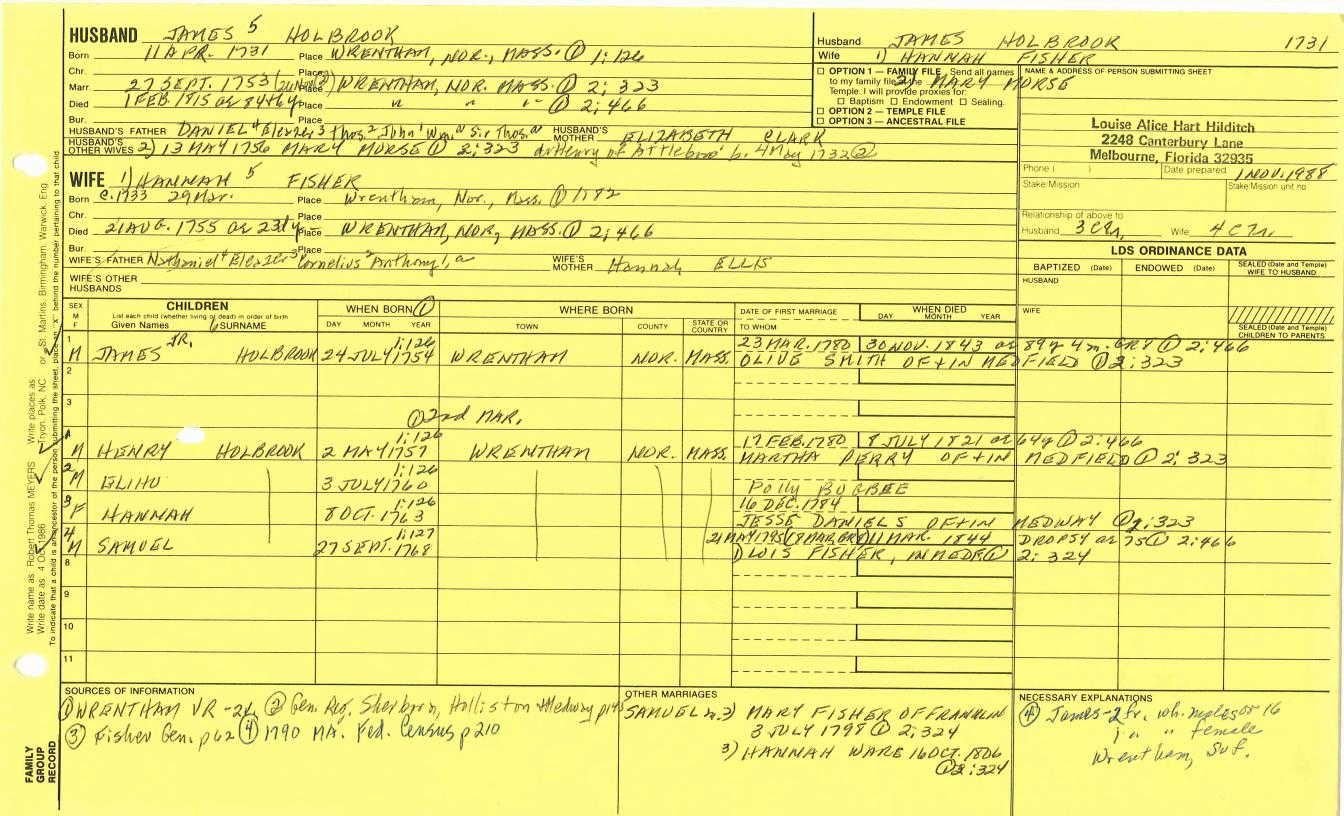 HUSBAND JAMES 5 HOLBROOK
Born 11 APR. 1731 Place WRENTHAM, NOR., MASS. ① 1:126
Chr. Place
Marr 27 SEPT. 1753 Place WRENTHAM, NOR. MASS. ① 2; 323
Died 1 FEB. 1815 Place " " " ① 2; 466
Bur.
HUSBAND'S FATHER DANIEL 4 Eleazer 3 Thos. 2 John 1 Wm. a Sir Thos. a HUSBAND'S MOTHER ELIZABETH CLARK
HUSBAND'S OTHER WIVES 2) 13 MAY 1756 MARY MORSE ① 2;323 of Attleboro' b. 4 May 1732 ②
Husband JAMES HOLBROOK 1731
Wife 1) HANNAH FISHER
2) MARY MORSE
☐ OPTION 1 — FAMILY FILE Send all names
to my family file at the
Temple. I will provide proxies for:
☐ Baptism ☐ Endowment ☐ Sealing.
☐ OPTION 2 — TEMPLE FILE
☐ OPTION 3 — ANCESTRAL FILE
NAME & ADDRESS OF PERSON SUBMITTING SHEET
Louise Alice Hart Hilditch
2248 Canterbury Lane
Melbourne, Florida 32935
Phone ( ) Date prepared 1 NOV. 1988
Stake/Mission Stake/Mission unit no
Relationship of above to
Husband 3 Wife 4
WIFE 1) HANNAH 5 FISHER
Born c. 1733 29 Mar. Place Wrentham, Nor., Mass. ① 1:82
Chr. Place
Died 21 AUG. 1755 Place WRENTHAM, NOR, MASS. ① 2; 466
Bur. Place
WIFE'S FATHER Nathaniel 4 Eleazer 3 Cornelius 2 Anthony 1, a WIFE'S MOTHER Hannah ELLIS
WIFE'S OTHER HUSBANDS
LDS ORDINANCE DATA
BAPTIZED (Date) ENDOWED (Date) SEALED (Date and Temple) WIFE TO HUSBAND
HUSBAND
WIFE
SEALED (Date and Temple) CHILDREN TO PARENTS
SEX M F CHILDREN WHEN BORN ① WHERE BORN DATE OF FIRST MARRIAGE WHEN DIED
List each child (whether living or dead) in order of birth
Given Names 6 SURNAME DAY MONTH YEAR TOWN COUNTY STATE OR COUNTRY TO WHOM DAY MONTH YEAR
1 JR. 1:126 23 MAR. 1780 30 NOV. 1843 89y 4 m. ① 2:466
M JAMES HOLBROOK 24 JULY 1754 WRENTHAM NOR. MASS. OLIVE SMITH OF + IN MEDFIELD ① 2:323
2
3
① 2nd MAR.
1 1:126 17 FEB. 1780 8 JULY 1821 64y ① 2:466
M HENRY HOLBROOK 2 MAY 1757 WRENTHAM NOR. MASS. MARTHA PERRY OF + IN MEDFIELD ① 2; 323
2 1:126
M ELIHU 3 JULY 1760 Polly BUGBEE
3 1:126 16 DEC. 1784
F HANNAH 8 OCT. 1763 JESSE DANIELS OF + IN MEDWAY ① 2:323
4 1:127 21 MAY 1795 11 MAR. 1844 DROPSY 75 ① 2:466
M SAMUEL 27 SEPT. 1768 LOIS FISHER, ① 2: 324
8
9
10
11
SOURCES OF INFORMATION
① WRENTHAM VR - 2v ② Gen. Reg. Sherborn, Holliston + Medway
③ Fisher Gen. p 62 ④ 1790 MA. Fed. Census p 210
OTHER MARRIAGES
SAMUEL m. 2) MARY FISHER OF FRANKLIN
3 JULY 1798 ① 2; 324
3) HANNAH WARE 16 OCT. 1806
① 2:324
NECESSARY EXPLANATIONS
④ James - 2 fr. wh. males or 16
1 " " female
Wrentham, Suf.
FAMILY GROUP RECORD
Write name as Robert Thomas MEYERS Write places as Tryon, Polk, NC or St. Martins, Birmingham, Warwick, Eng
Write date as 4 Oct 1986
To indicate that a child is an ancestor of the person submitting the sheet, place an "X" behind the number pertaining to that child